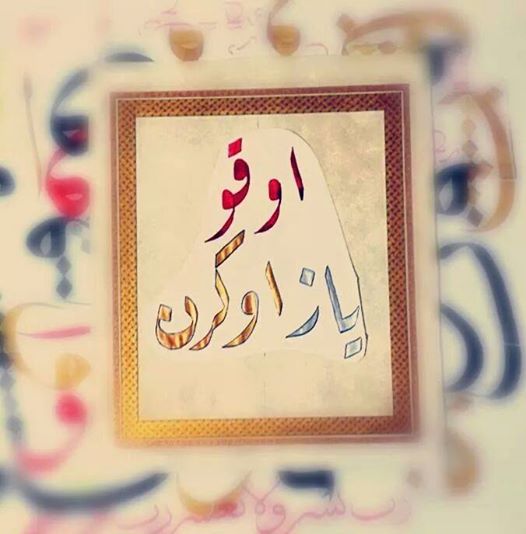 اوقو
ياز اوكرن